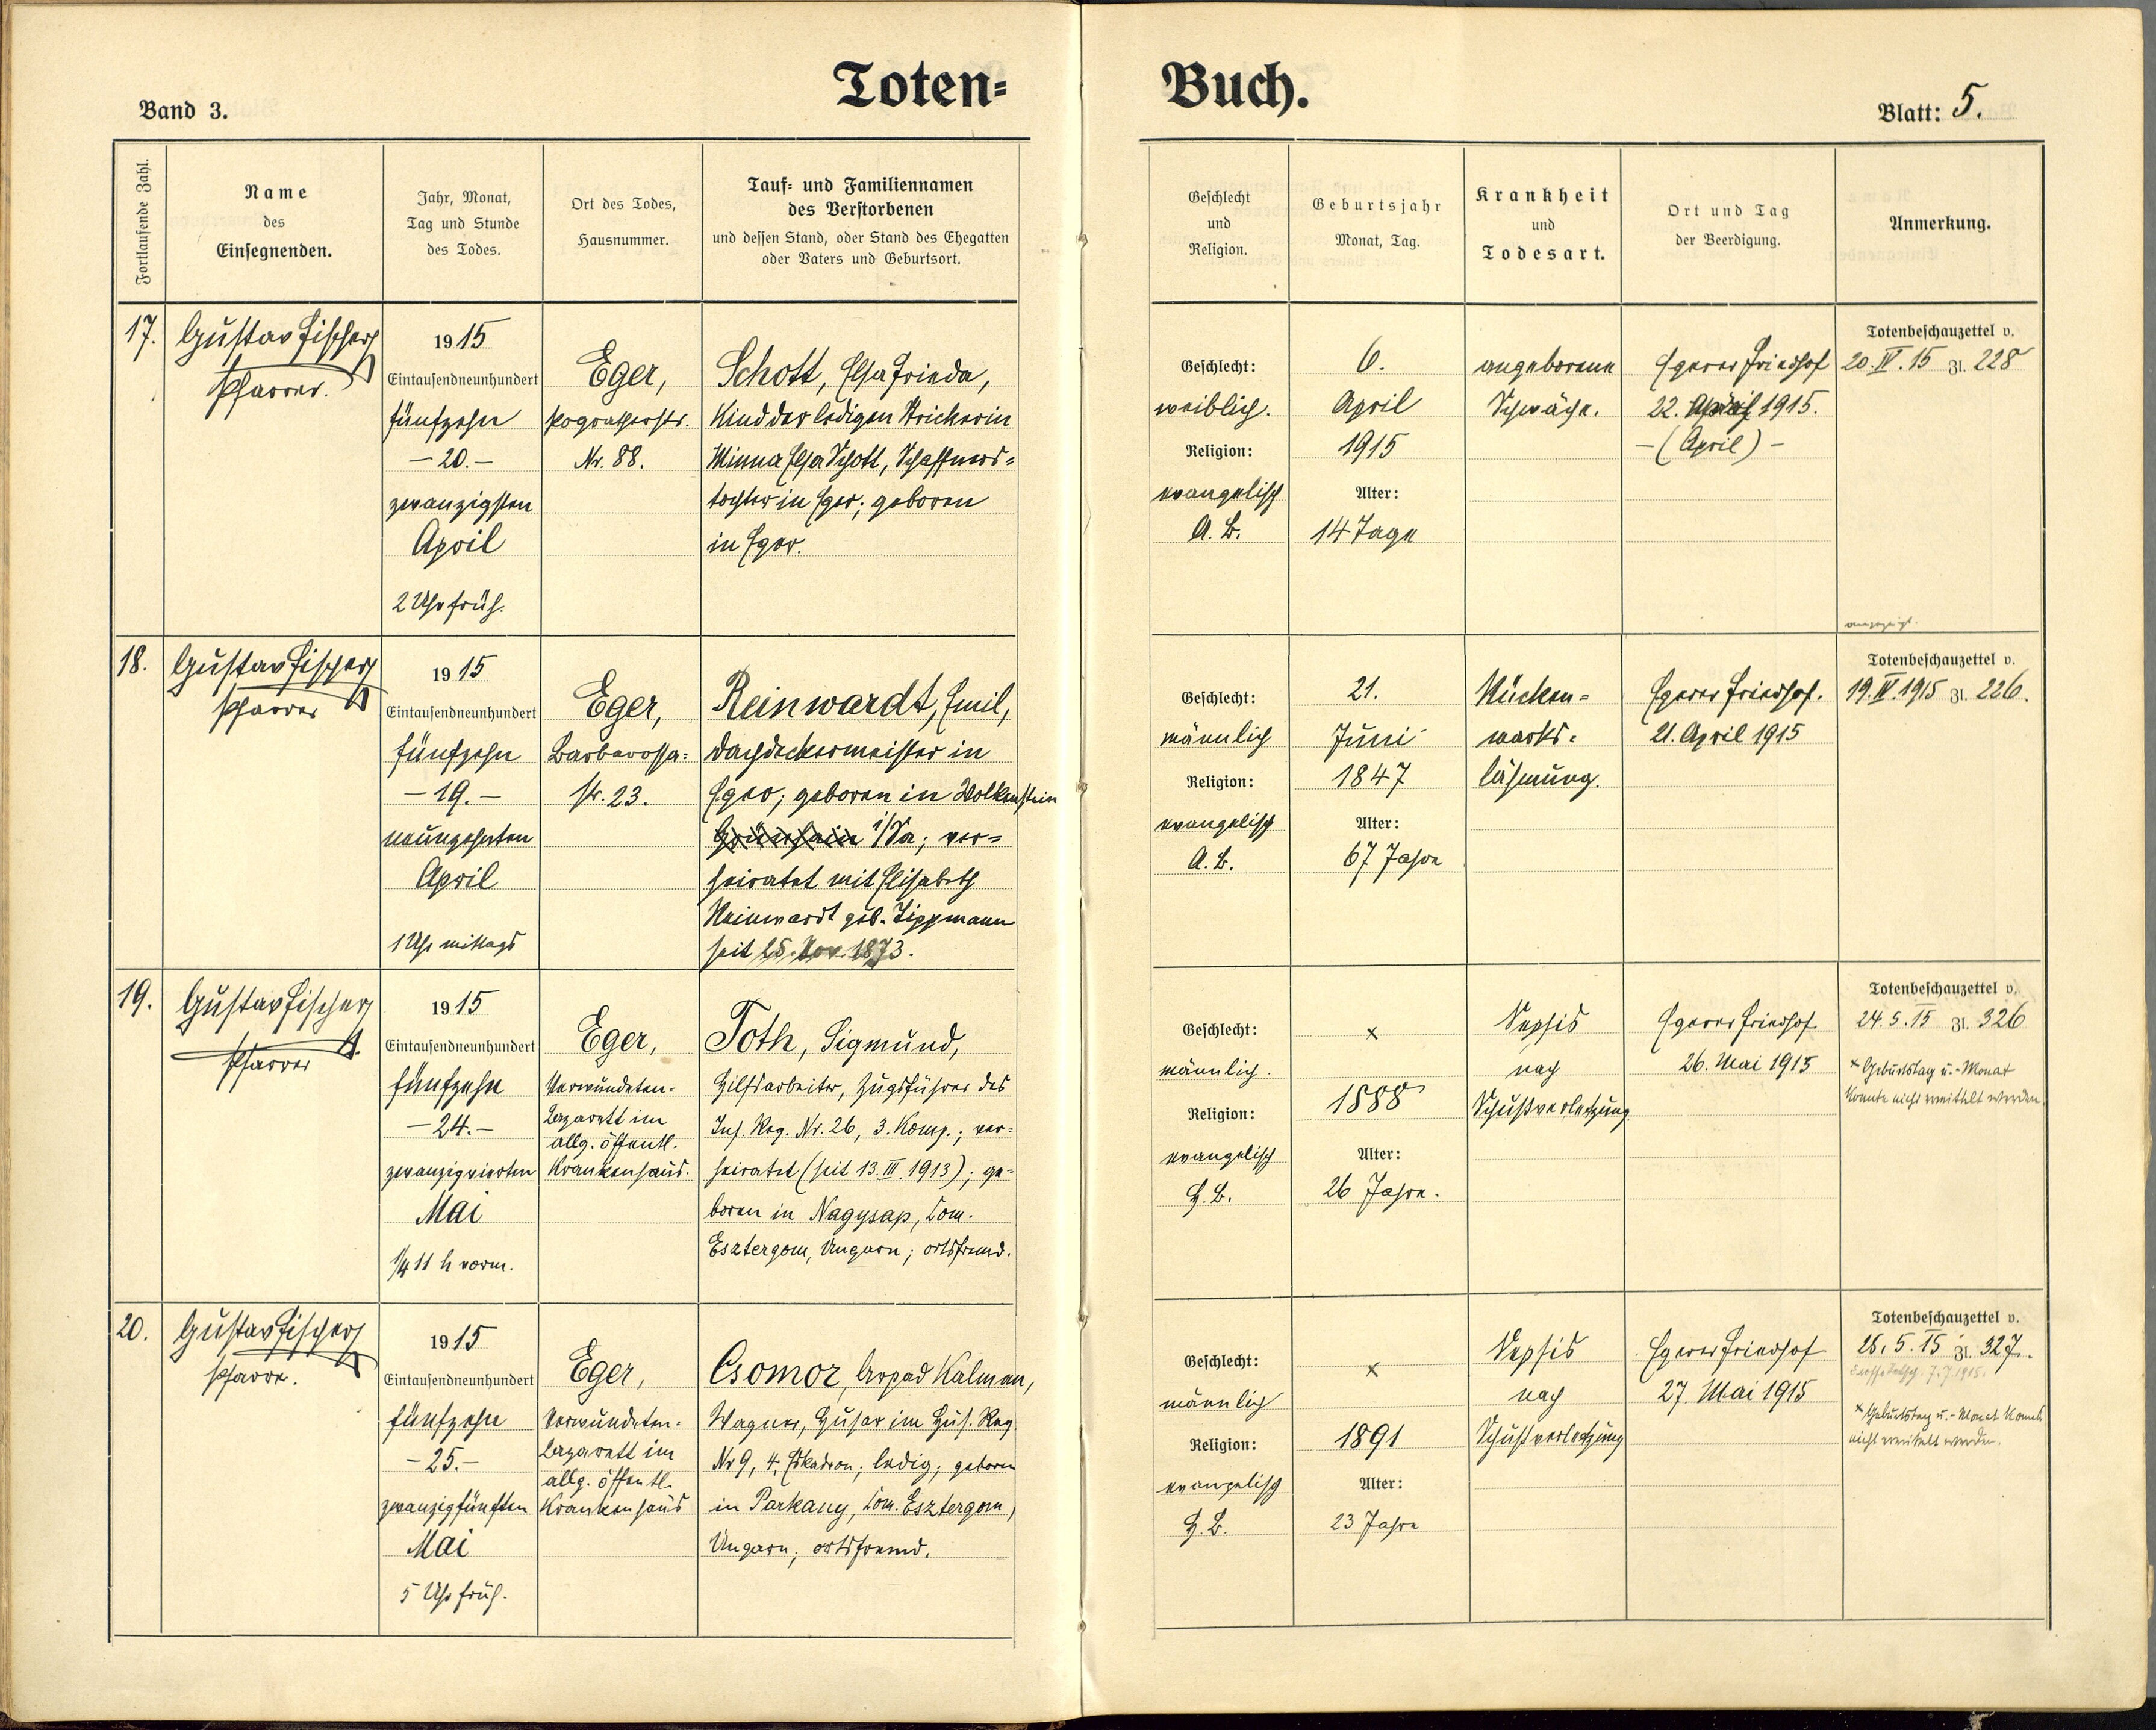 Toten=
Buch.
Band 3.
Blatt: 5.
Fortlaufende Zahl.
Name
des
Einsegnenden.
Jahr, Monat,
Tag und Stunde
des Todes.
Ort des Todes,
Hausnummer.
Tauf= und Familiennamen
des Verstorbenen
und dessen Stand, oder Stand des Ehegatten
oder Vaters und Geburtsort.
Geschlecht
und
Religion.
Geburtsjahr
Monat, Tag.
Krankheit
und
Todesart.
Ort und Tag
der Beerdigung.
Anmerkung.
17.
Gustav Fischer
Pfarrer.
1915
Eintausendneunhundert
fünfzehn
–20.–
zwanzigsten
April
2 Uhr früh.
Eger,
Pogratherstr.
Nr. 88.
Schott, Elsa Frieda,
Kind der ledigen Strickerin
Minna Elsa Schott, Schaffners=
tochter in Eger; geboren
in Eger.
Geschlecht:
weiblich.
Religion:
evangelisch
A. B.
6.
April
1915
Alter:
14 Tage
angeborene
Schwäche.
Egerer Friedhof
22. April 1915.
–(April)–
Totenbeschauzettel v.
20.IV.15 Zl. 228
angezeigt.
18.
Gustav Fischer
Pfarrer
1915
Eintausendneunhundert
fünfzehn
–19.–
neunzehnten
April
1 Uhr mittags
Eger,
Barbarossa=
str. 23.
Reinwardt, Emil,
Dachdeckermeister in
Eger; geboren in Wolkenstein
Grünhain i/Sa; ver=
heiratet mit Elisabeth
Reinwardt geb. Tippmann
seit 25. Nov. 1873.
Geschlecht:
männlich
Religion:
evangelisch
A. B.
21.
Juni
1847
Alter:
67 Jahre
Rücken=
marks=
lähmung.
Egerer Friedhof.
21. April 1915
Totenbeschauzettel v.
19.IV.1915 Zl. 226.
19.
Gustav Fischer
Pfarrer
1915
Eintausendneunhundert
fünfzehn
–24.–
zwanzigvierten
Mai
1/4 11 h vorm.
Eger,
Verwundeten=
Lazarett im
allg. öffentl.
Krankenhaus.
Toth, Sigmund,
Hilfsarbeiter, Zugsführer des
Inf. Reg. Nr. 26, 3. Komp.; ver=
heiratet (seit 13.III.1913); ge=
boren in Nagysap, Com.
Esztergom, Ungarn; ortsfremd.
Geschlecht:
männlich.
Religion:
evangelisch
H. B.
×
1888
Alter:
26 Jahre.
Sepsis
nach
Schußverletzung
Egerer Friedhof
26. Mai 1915
Totenbeschauzettel v.
24.5.15 Zl. 326
× Geburtstag u. -Monat
konnte nicht ermittelt werden.
20.
Gustav Fischer
Pfarrer.
1915
Eintausendneunhundert
fünfzehn
–25.–
zwanzigfünften
Mai
5 Uhr früh.
Eger,
Verwundeten=
Lazarett im
allg. öffentl.
Krankenhaus
Csomor, Arpad Kalman,
Wagner, Husar im Hus. Reg.
Nr 9, 4. Eskadron; ledig; geboren
in Parkany, Com. Esztergom,
Ungarn; ortsfremd.
Geschlecht:
männlich
Religion:
evangelisch
H. B.
×
1891
Alter:
23 Jahre
Sepsis
nach
Schußverletzung
Egerer Friedhof
27. Mai 1915
Totenbeschauzettel v.
25.5.15 Zl. 327.
7.7.1915.
× Geburtstag u. -Monat konnte
nicht ermittelt werden.